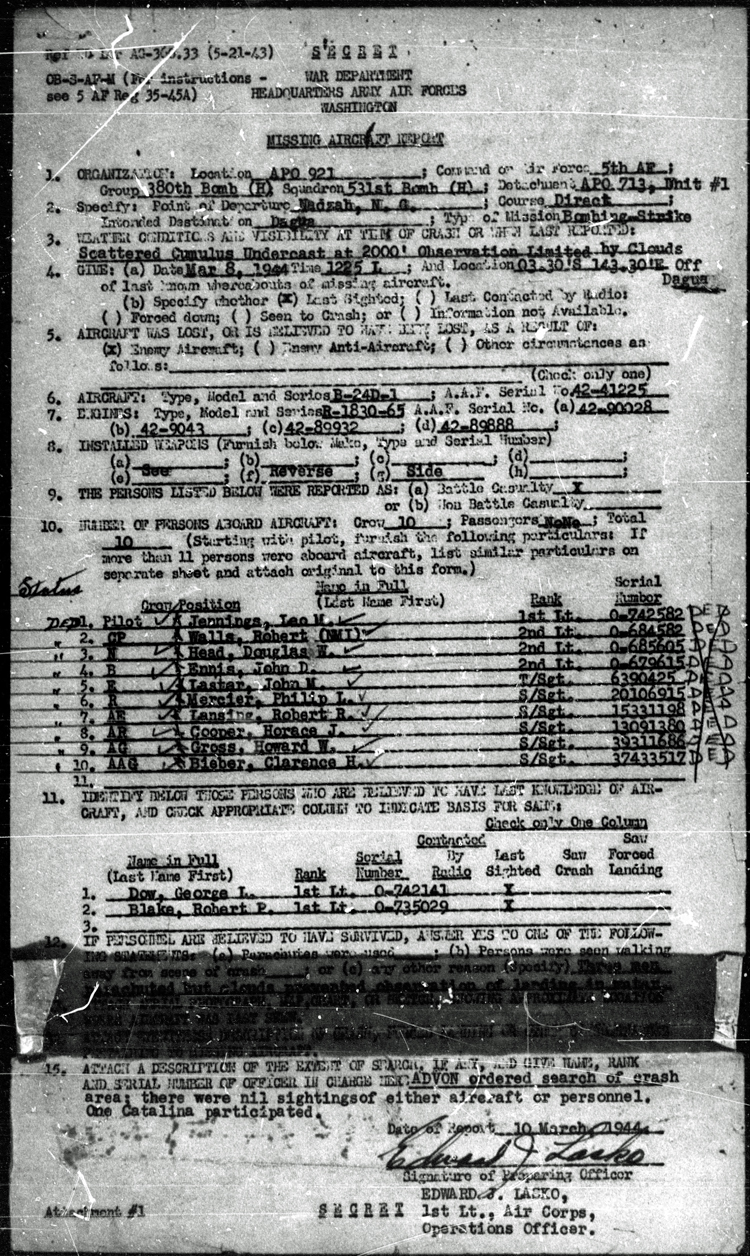 Ref to Ltr AG-360.33 (5-21-43) SECRET
OB-S-AF-M (For instructions - WAR DEPARTMENT
see 5 AF Reg 35-45A) HEADQUARTERS ARMY AIR FORCES
WASHINGTON
MISSING AIRCRAFT REPORT
1. ORGANIZATION: Location APO 921 ; Command or Air Force 5th AF ;
Group 380th Bomb (H) Squadron 531st Bomb (H) ; Detachment APO 713, Unit #1
2. Specify: Point of Departure Nadzab, N. G. ; Course Direct ;
Intended Destination Dagua ; Type of Mission Bombing-Strike
3. WEATHER CONDITIONS AND VISIBILITY AT TIME OF CRASH OR WHEN LAST REPORTED:
Scattered Cumulus Undercast at 2000' Observation Limited by Clouds
4. GIVE: (a) Date Mar 8, 1944 Time 1225 L ; And Location 03.30'S 143.30'E Off
of last known whereabouts of missing aircraft. Dagua
(b) Specify whether (X) Last Sighted; ( ) Last Contacted by Radio:
( ) Forced down; ( ) Seen to Crash; or ( ) Information not Available.
5. AIRCRAFT WAS LOST, OR IS BELIEVED TO HAVE BEEN LOST, AS A RESULT OF:
(X) Enemy Aircraft; ( ) Enemy Anti-Aircraft; ( ) Other circumstances as
follows:
(Check only one)
6. AIRCRAFT: Type, Model and Series B-24D-1 ; A.A.F. Serial No. 42-41225
7. ENGINES: Type, Model and Series R-1830-65 A.A.F. Serial No. (a) 42-90028
(b) 42-9043 ; (c) 42-89932 ; (d) 42-89888 ;
8. INSTALLED WEAPONS (Furnish below Make, Type and Serial Number)
(a) ; (b) ; (c) ; (d) ;
(e) See ; (f) Reverse ; (g) Side ; (h) ;
9. THE PERSONS LISTED BELOW WERE REPORTED AS: (a) Battle Casualty X
or (b) Non Battle Casualty
10. NUMBER OF PERSONS ABOARD AIRCRAFT: Crew 10 ; Passengers NoNe ; Total
10 (Starting with pilot, furnish the following particulars: If
more than 11 persons were aboard aircraft, list similar particulars on
separate sheet and attach original to this form.)
Status Name in Full Serial
Crew Position (Last Name First) Rank Number
DED 1. Pilot Jennings, Leo M. 1st Lt. O-742582 DED
" 2. CP Walls, Robert (NMI) 2nd Lt. O-684582 DED
" 3. N Head, Douglas W. 2nd Lt. O-685605 DED
" 4. B Ennis, John D. 2nd Lt. O-679615 DED
" 5. E Laster, John M. T/Sgt. 6390425 DED
" 6. R Mercier, Philip L. S/Sgt. 20106915 DED
" 7. AE Lansing, Robert R. S/Sgt. 15331198 DED
" 8. AR Cooper, Horace J. S/Sgt. 13091380 DED
" 9. AG Gross, Howard W. S/Sgt. 39311686 DED
" 10. AAG Bieber, Clarence H. S/Sgt. 37433517 DED
11.
11. IDENTIFY BELOW THOSE PERSONS WHO ARE BELIEVED TO HAVE LAST KNOWLEDGE OF AIR-
CRAFT, AND CHECK APPROPRIATE COLUMN TO INDICATE BASIS FOR SAME:
Check only One Column
Contacted Saw
Name in Full Serial By Last Saw Forced
(Last Name First) Rank Number Radio Sighted Crash Landing
1. Dow, George L. 1st Lt. O-742141 X
2. Blake, Robert P. 1st Lt. O-735029 X
3.
12. IF PERSONNEL ARE BELIEVED TO HAVE SURVIVED, ANSWER YES TO ONE OF THE FOLLOW-
ING STATEMENTS: (a) Parachutes were used ; (b) Persons were seen walking
away from scene of crash ; or (c) any other reason (Specify) Three men
parachuted but clouds prevented observation of landing in water.
15. ATTACH A DESCRIPTION OF THE EXTENT OF SEARCH, IF ANY, AND GIVE NAME, RANK
AND SERIAL NUMBER OF OFFICER IN CHARGE HERE ADVON ordered search of crash
area; there were nil sightings of either aircraft or personnel.
One Catalina participated.
Date of Report 10 March, 1944
Edward J Lasko
Signature of Preparing Officer
EDWARD J. LASKO,
Attachment #1 SECRET 1st Lt., Air Corps,
Operations Officer.